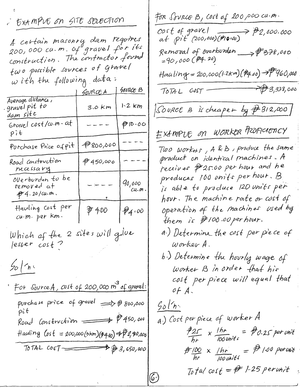 ∴ EXAMPLE ON SITE SELECTION
A certain masonry dam requires
200,000 cu.m. of gravel for its
construction. The contractor found
two possible sources of gravel
with the following data:
SOURCE A SOURCE B
Average distance, gravel pit to dam site 3.0 km 1.2 km
Gravel cost/cu.m. at pit --- ₱10.00
Purchase Price of pit ₱800,000 ---
Road Construction necessary ₱450,000 ---
Overburden to be removed at ₱4.20/cu.m. --- 90,000 cu.m.
Hauling Cost per cu.m. per km. ₱4.00 ₱4.00
Which of the 2 sites will give
lesser cost?
Sol'n:
For Source A, cost of 200,000 m³ of gravel:
purchase price of gravel pit → ₱800,000
Road Construction → ₱450,000
Hauling Cost = 200,000(3km)(₱4.00) →
TOTAL COST → ₱3,650,000
For Source B, cost of 200,000 cu.m.
Cost of gravel at pit (200,000)
Removal of overburden
=90,000 (₱4.20) → ₱378,000
Hauling = 200,000(1.2km)(₱4.00) → ₱960,000
TOTAL COST
SOURCE B is cheaper by ₱312,000
EXAMPLE ON WORKER PROFICIENCY
Two workers, A & B, produce the same
product on identical machines. A
receives ₱25.00 per hour and he
produces 100 units per hour. B
is able to produce 120 units per
hour. The machine rate or cost of
operation of the machines used by
them is ₱100.00 per hour.
a) Determine the cost per piece of
worker A.
b) Determine the hourly wage of
worker B in order that his
cost per piece will equal that
of A.
Sol'n:
a) Cost per piece of worker A
₱25/hr × 1hr./100 units = ₱0.25 per unit
₱100/hr × 1hr/100 units = ₱1.00 per unit
Total cost = ₱1.25 per unit